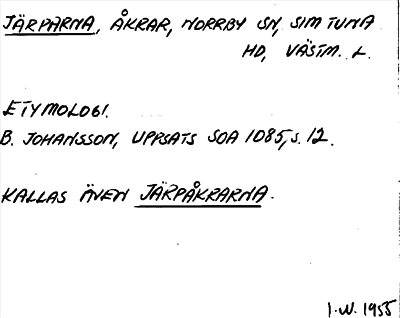 JÄRPARNA, ÅKRAR, NORRBY SN, SIMTUNA
HD, VÄSTM. L.
ETYMOLOGI.
B. JOHANSSON, UPPSATS SOA 1085, S. 12.
KALLAS ÄVEN JÄRPÅKRARNA.
I.W. 1955